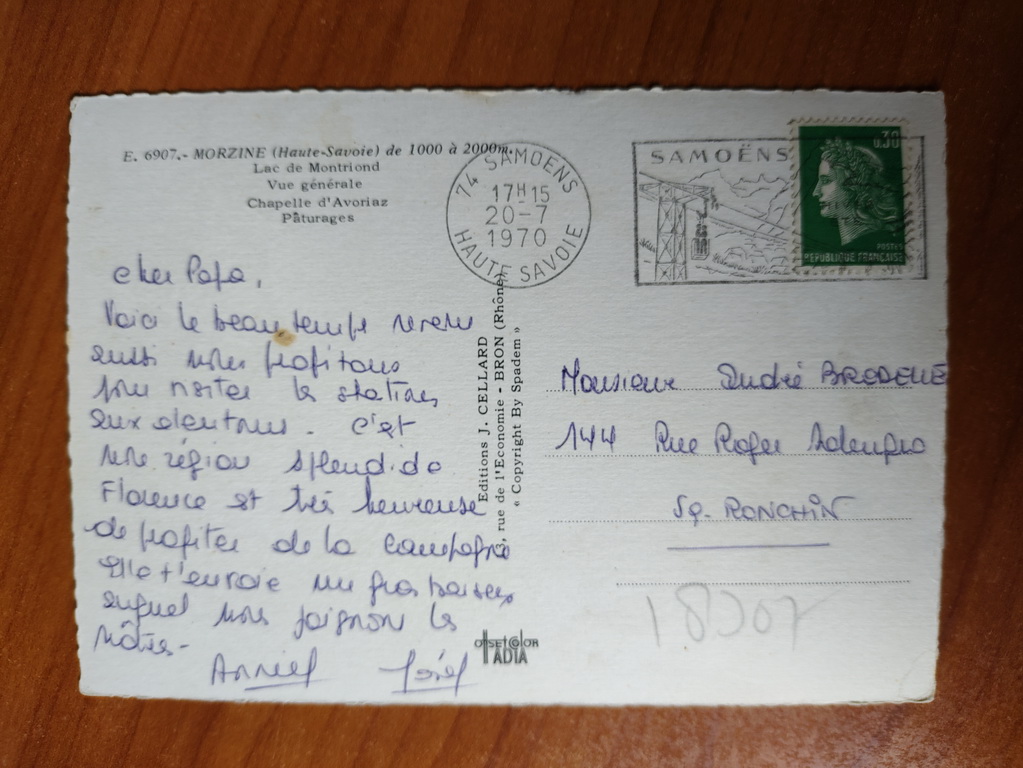 E. 6907.- MORZINE (Haute-Savoie) de 1000 à 2000m.
Lac de Montriond
Vue générale
Chapelle d'Avoriaz
Pâturages
74 SAMOENS
17H15
20-7
1970
HAUTE SAVOIE
SAMOËNS
0,30
POSTES
REPUBLIQUE FRANÇAISE
cher Papa,
Voici le beau temps revenu
aussi nous profitons
pour visiter les stations
aux alentours. C'est
une région splendide
Florence est très heureuse
de profiter de la campagne
Elle t'envoie un gros baisers
auquel nous joignons les
nôtres-
Annie
Editions J. CELLARD
rue de l'Economie - BRON (Rhône)
« Copyright By Spadem »
offset color
IADIA
Monsieur André
144 Rue Roger Salengro
59. RONCHIN
18307